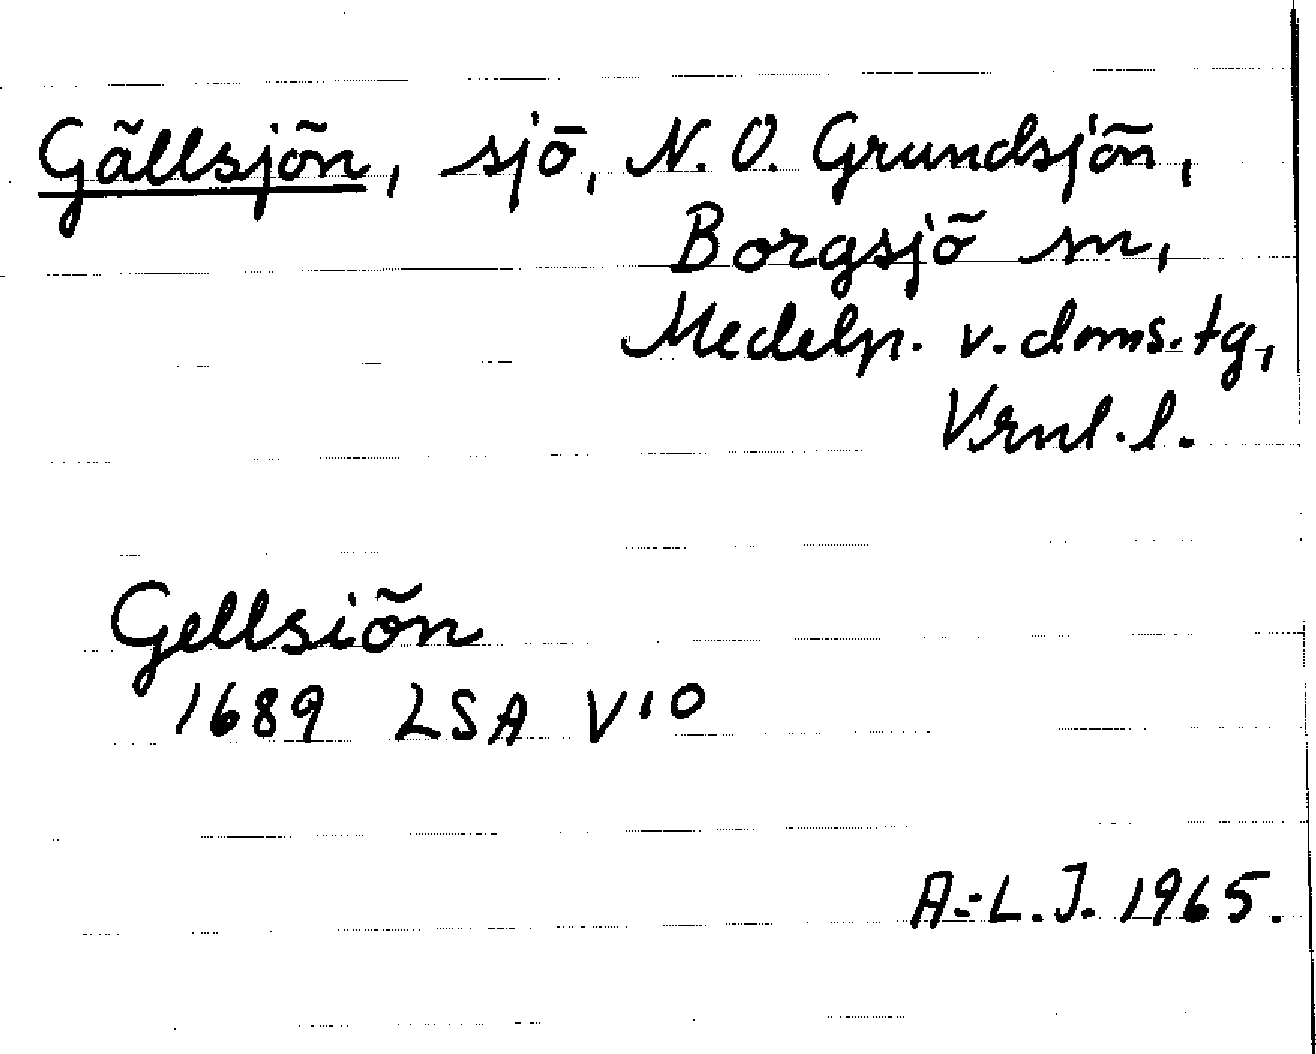 Gällsjön, sjö, N. O. Grundsjön,
Borgsjö sn,
Medelp. v. doms. tg,
Vrnl. l.
Gellsiön
1689 LSA V10
A.-L. J. 1965.